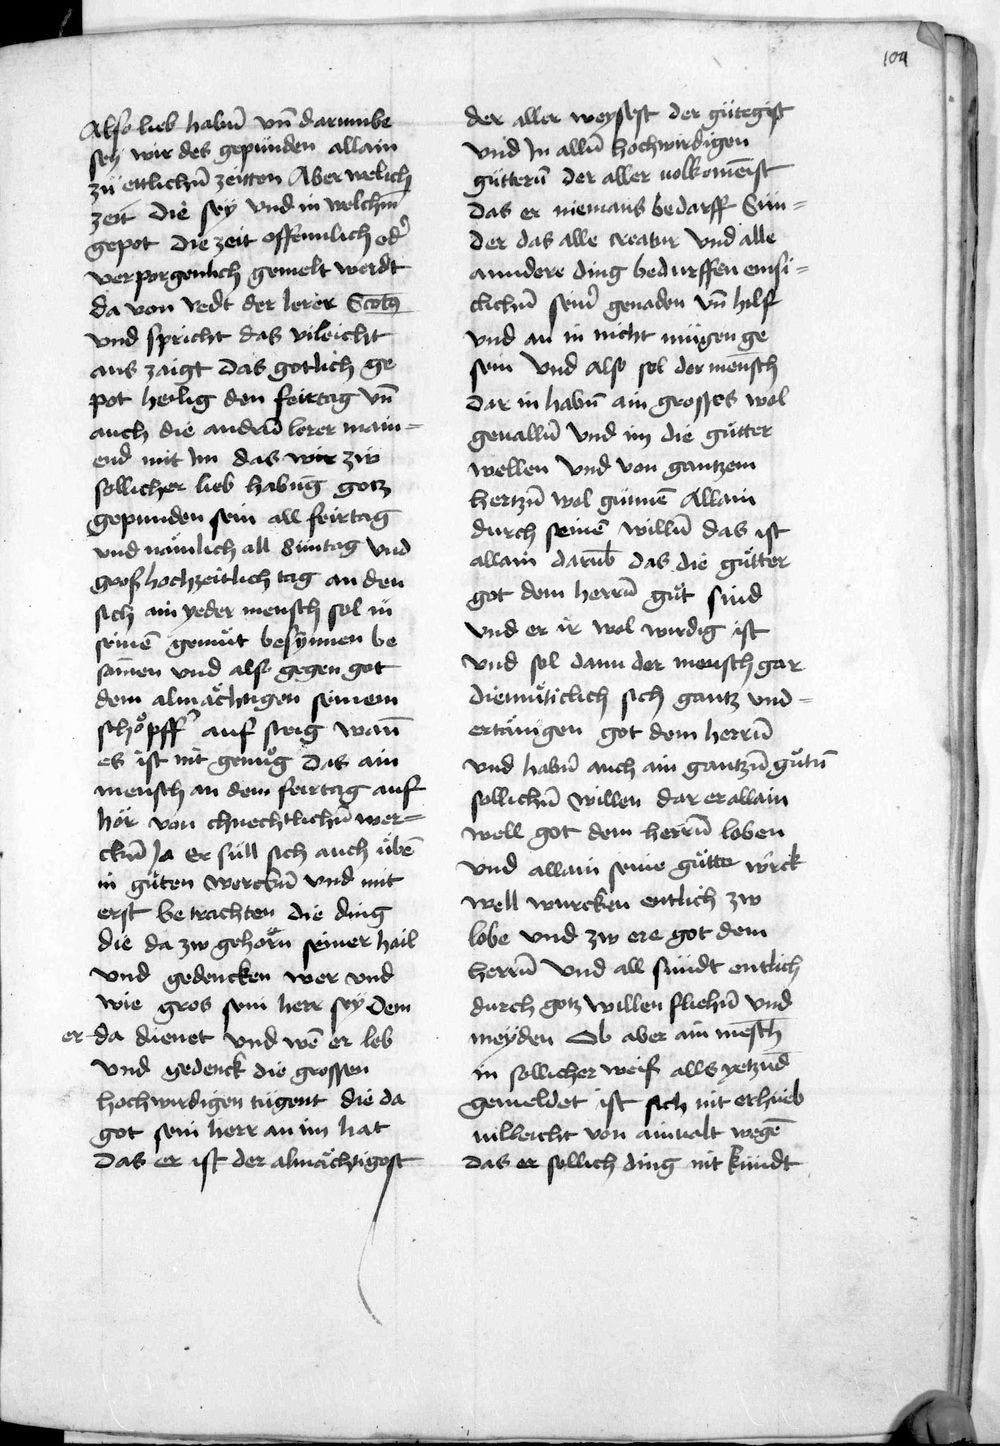 104
Also lieb habn̄ vn̄ darumbe
sey wir des gepunden allain
zu ettlichn̄ zeitten Aber welich
zeit die sey vnd in welchm̄
gepot die zeit offennlich od'
verporgenlich gemelt werdt
da von redt der lerer Scotꝰ
vnd spricht das vileicht
aus zaigt das gotlich ge
pot heilig den feirtag vn̄
auch die andn̄ lerer main=
end mit Im das wir zw
sollicher lieb habūg gotz
gepunden sein all feirtag
vnd nämlich all Suntag vnd
groß hochzeitlich tag an den
sich ain yeder mensch sol in
seinē gemůt besynnen be
samen vnd also gegen got
dem almächtigen seinem
schöpff' auf steig wan̄
es ist nit genůg das ain
mensch an dem feirtag auf
hör von chnechtlichn̄ wer=
ckn̄ Ja er süll sich auch übē
in gůten werckn̄ vnd mit
erst betrachten die ding
die da zw gehörn̄ seiner hail
vnd gedencken wer vnd
wie gros sein herr sey Dem
er da dienet vnd wē er leb
vnd gedenck die grossen
hochwirdigen tugent die da
got sein herr an im hat
Das er ist der almächtigost
der aller weysest der gütigist
vnd In alln̄ hochwirdigen
güttern̄ der aller volkomēist
das er niemans bedarff Sun=
der das alle creatur vnd alle
anndere ding bedurffen ensi=
clichn̄ sein' genaden vn̄ hilf
vnd an in nicht mügen ge
sein vnd also sol der mensch
dar in habn̄ ain grosses wol
geualln̄ vnd im die gütter
wellen vnd von gantzem
hertzn̄ wol günnē Allain
durch seinē willn̄ das ist
allain darūb das die gütter
got dem herrn̄ gůt sind
vnd er ir wol wirdig ist
vnd sol dann der mensch gar
diemüticlich sich gantz vnd=
ertänigen got dem herrn̄
vnd habn̄ auch ain gantzn̄ gůtn̄
sollichn̄ willen dar er allain
well got dem herrn̄ loben
vnd allain seine gütte w'ck
well wurcken entlich zw
lobe vnd zw ere got dem
herrn̄ vnd all sündt entlich
durch gotz willen fliehn̄ vnd
meyden Ob aber ain mēsch
in sollicher weiß alls yetzūd
gemeldet ist sich nit erhüeb
villeicht von ainualt wegē
das er sollich ding nit kündt